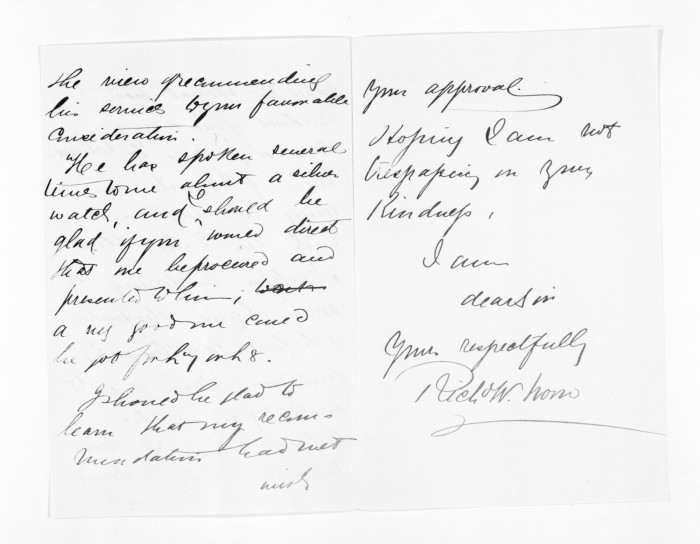 the view of recommending
his services to your favorable
Consideration.
He has spoken several
times to me about a silver
watch, and I should be
glad if you would direct
that one be procured and
presented to him;
a very good one could
be got for
I should be glad to
learn that my recom-
mendation had met
with
Your approval.
Hoping I am not
trespassing on your
Kindness,
I am
dear sir
Yours respectfully
Richd W.